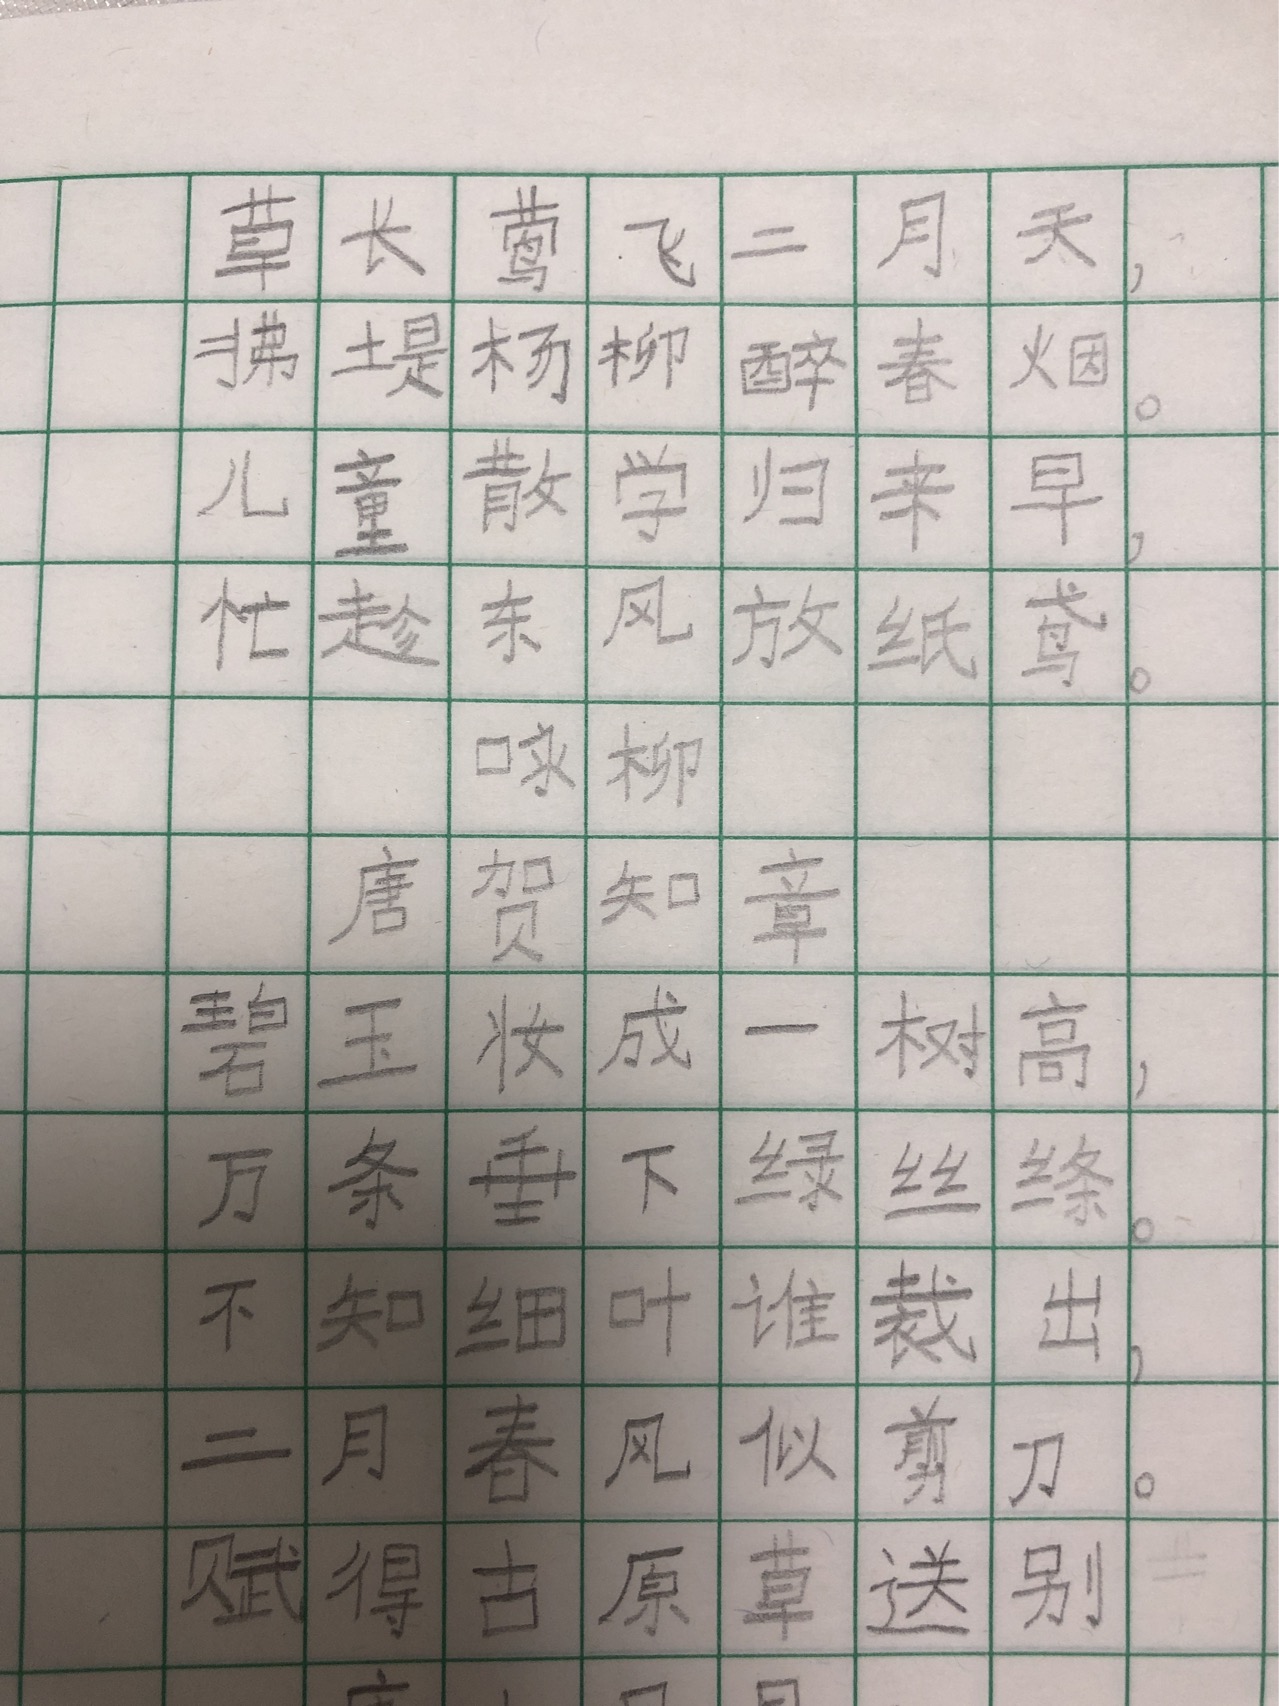 草长莺飞二月天，
拂堤杨柳醉春烟。
儿童散学归来早，
忙趁东风放纸鸢。
咏柳
唐贺知章
碧玉妆成一树高，
万条垂下绿丝绦。
不知细叶谁裁出，
二月春风似剪刀。
赋得古原草送别